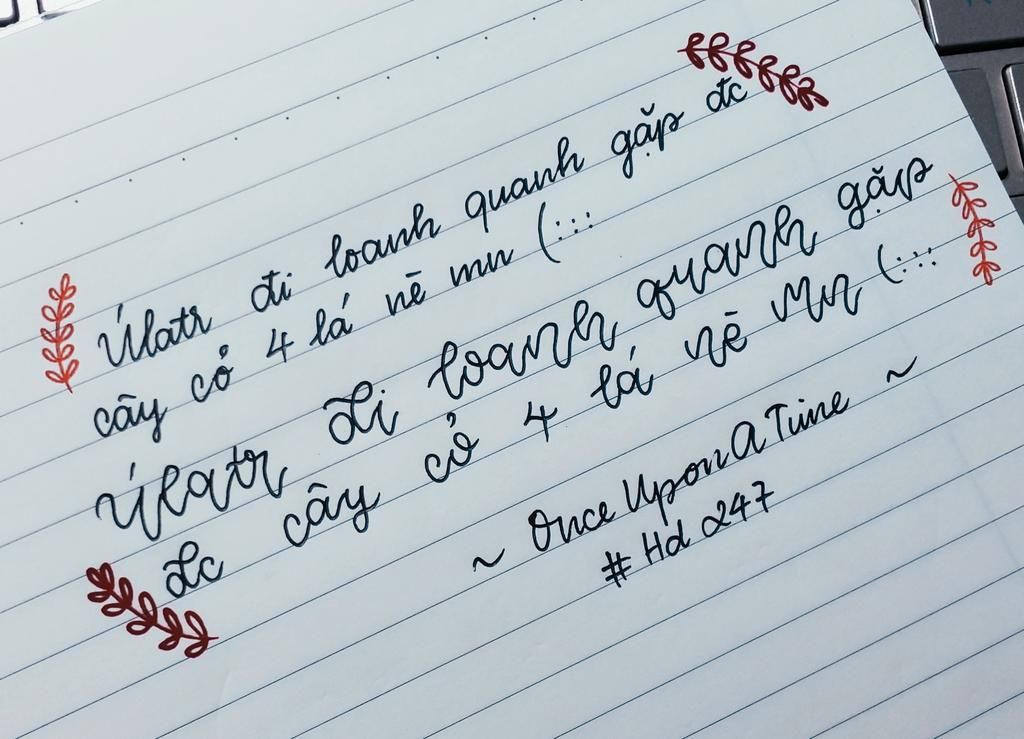 Úlatr đi loanh quanh gặp đc
cây cỏ 4 lá nē mn (:::
Úlatr đi loanh quanh gặp
đc cây cỏ 4 lá nē mn (:::
~ Once Upon A Time ~
# Hd 247